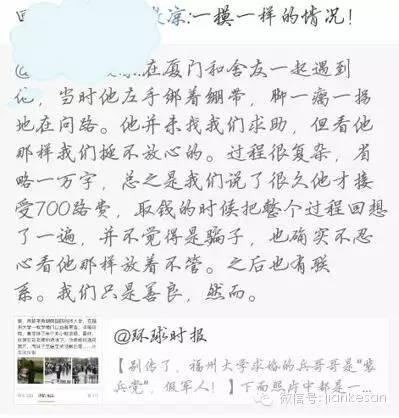 凉:一摸一样的情况！
在厦门和舍友一起遇到
他，当时他左手绑着绷带，脚一瘸一拐
地在问路。他并未找我们求助，但看他
那样我们挺不放心的。过程很复杂，省
略一万字，总之是我们说了很久他才接
受700路费，取钱的时候把整个过程回想
了一遍，并不觉得是骗子，也确实不忍
心看他那样放着不管。之后也有联
系。我们只是善良，然而。
@环球时报
【别传了，福州大学求婚的兵哥哥是“装
兵党”，假军人！】下面照片中都是一...
微信号: jiankesan